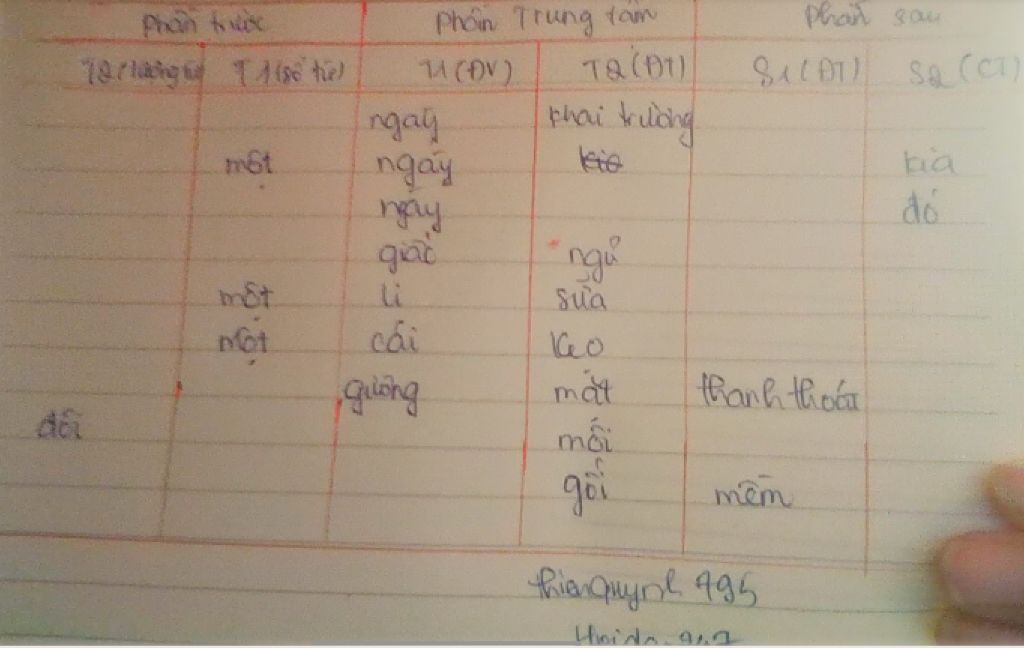 Phần trước Phần Trung tâm Phần sau
T2 (lượng từ) T1 (số từ) T1 (ĐV) T2 (ĐT) S1 (ĐT) S2 (CT)
ngày khai trường
một ngày kia kia
ngày đó
giấc ngủ
một li sữa
một cái kẹo
gương mặt thanh thoát
đôi môi
gối mềm
thienquynh 495